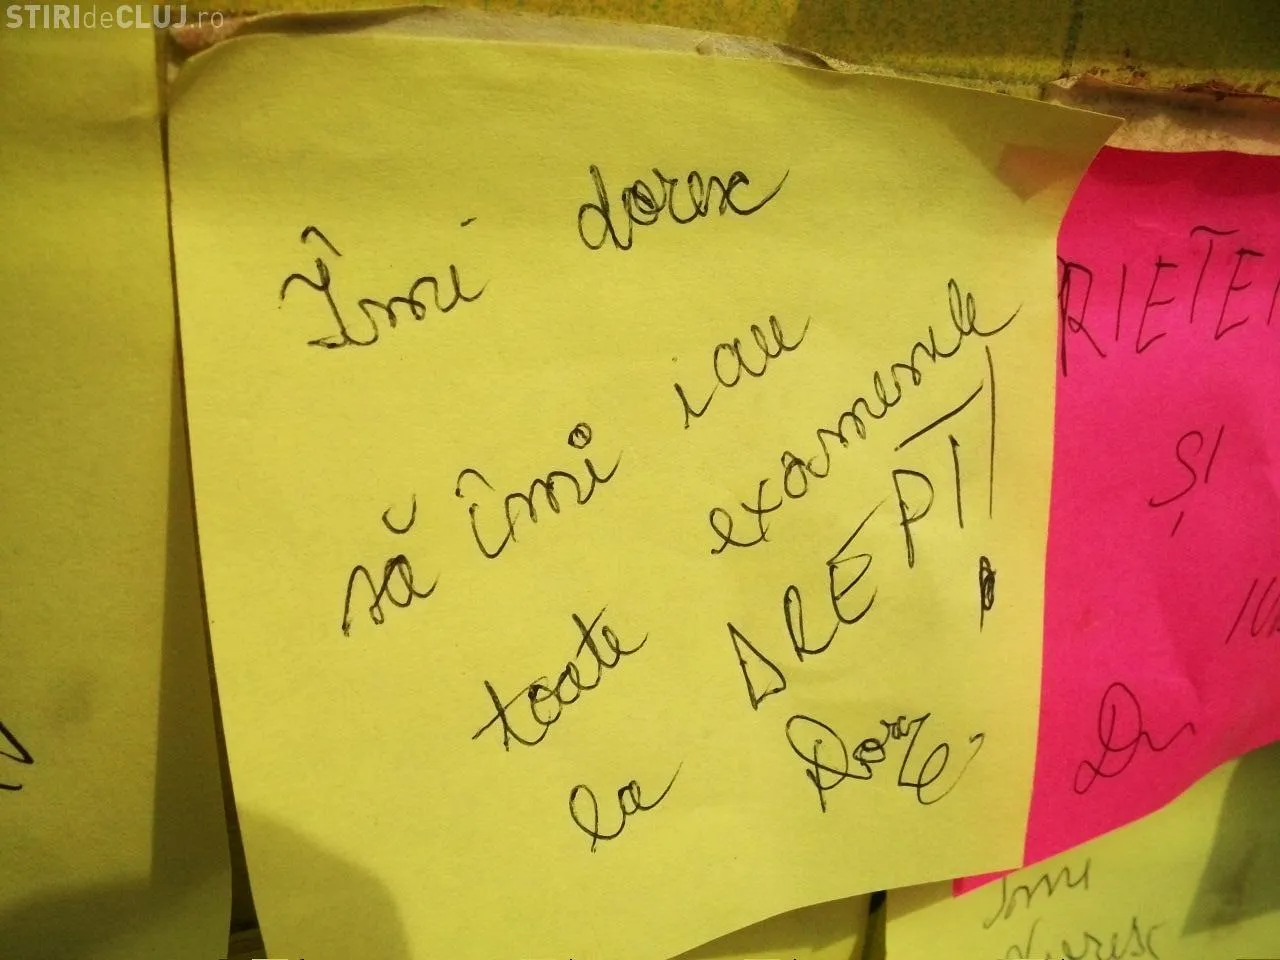 STIRIdeCLUJ.ro
Îmi doresc
să îmi iau
toate examenele
la DREPT!
RIETE
ȘI
Îmi
doresc